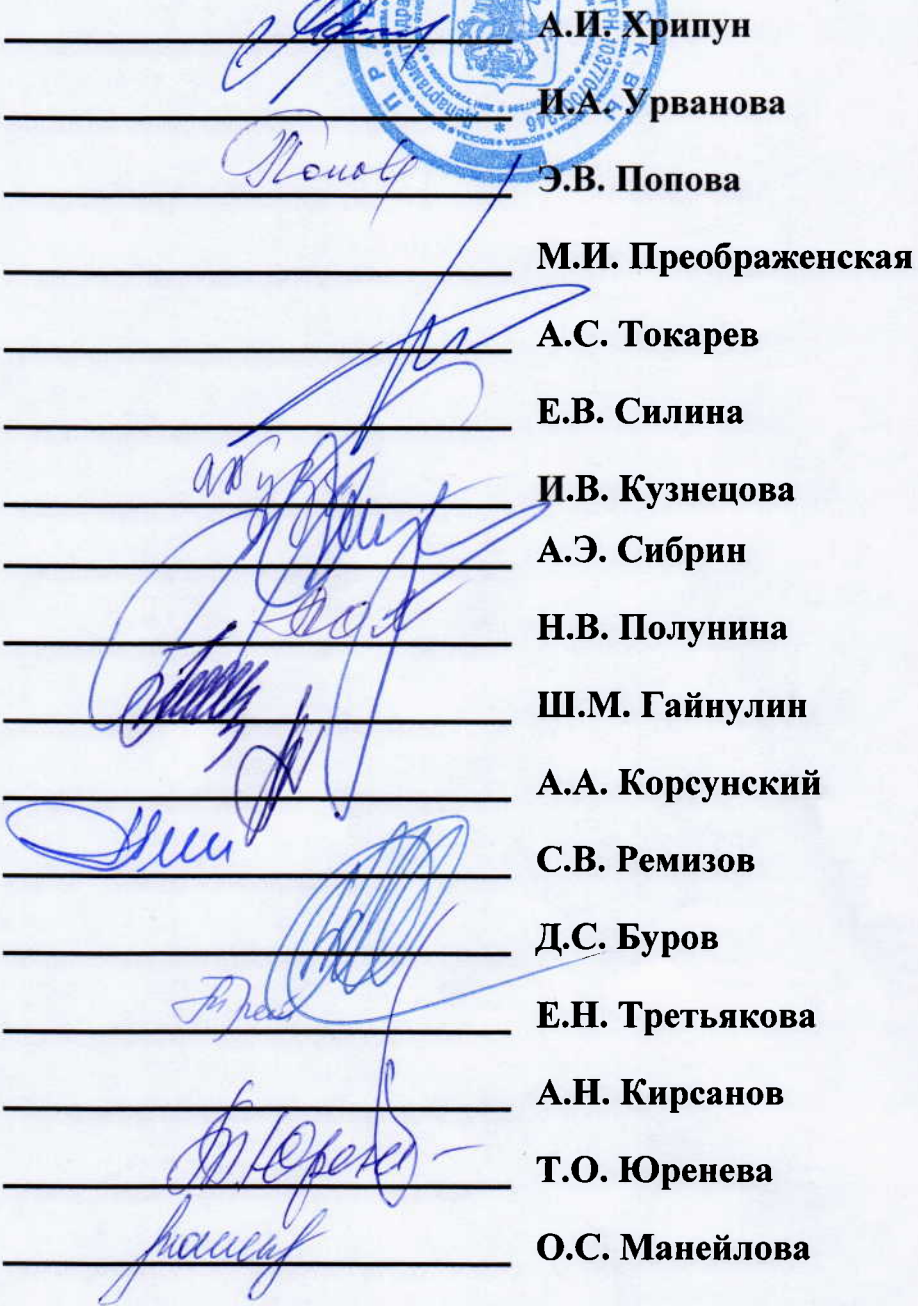 А.И. Хрипун
И.А. Урванова
Э.В. Попова
М.И. Преображенская
А.С. Токарев
Е.В. Силина
И.В. Кузнецова
А.Э. Сибрин
Н.В. Полунина
Ш.М. Гайнулин
А.А. Корсунский
С.В. Ремизов
Д.С. Буров
Е.Н. Третьякова
А.Н. Кирсанов
Т.О. Юренева
О.С. Манейлова